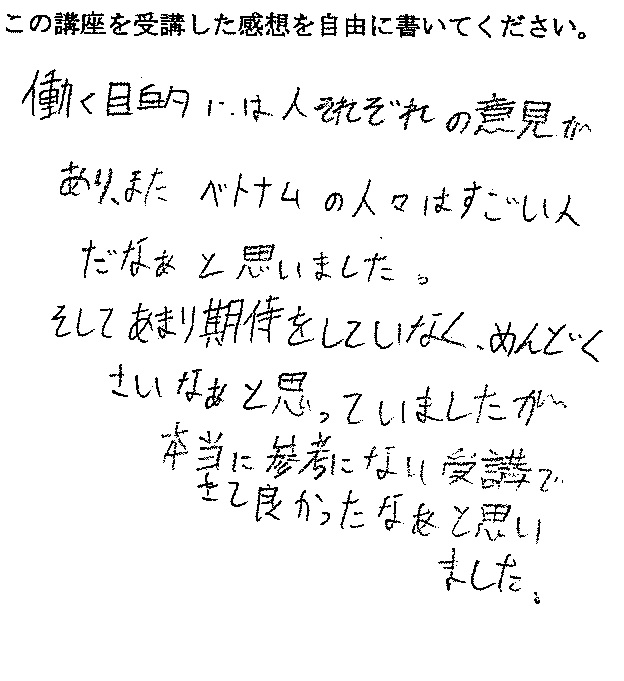 この講座を受講した感想を自由に書いてください。
働く目的には人それぞれの意見が
あり、また ベトナムの人々はすごい人
だなぁと思いました。
そしてあまり期待をしていなく、めんどく
さいなぁと思っていましたが
本当に参考になり受講で
きて良かったなぁと思い
ました。